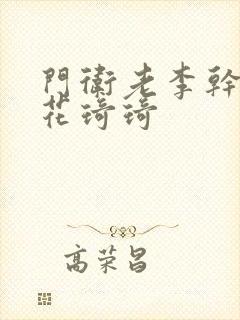 門衛老李幹
花琦琦
高荣昌